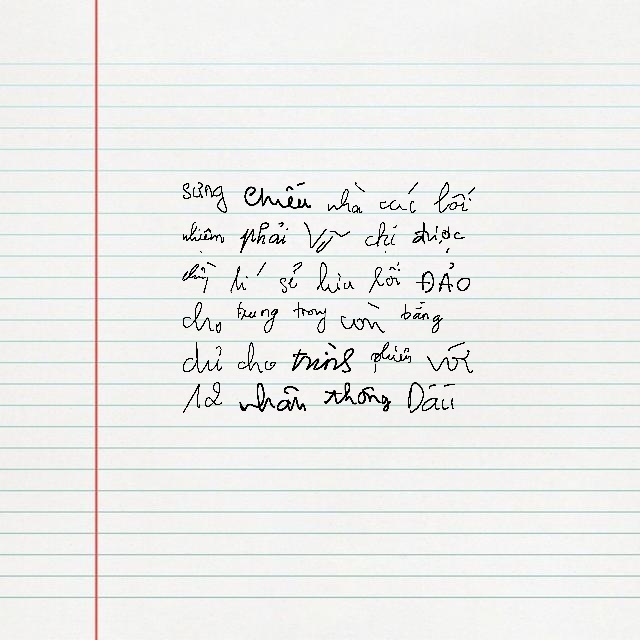 sưng Chiếu nhà các lối
nhiệm phải Vỹ chị được
lí sẽ hữu lối ĐẢO
cho trung trong còn bằng
dủ cho trình phiên với
12 nhân thông Dấu